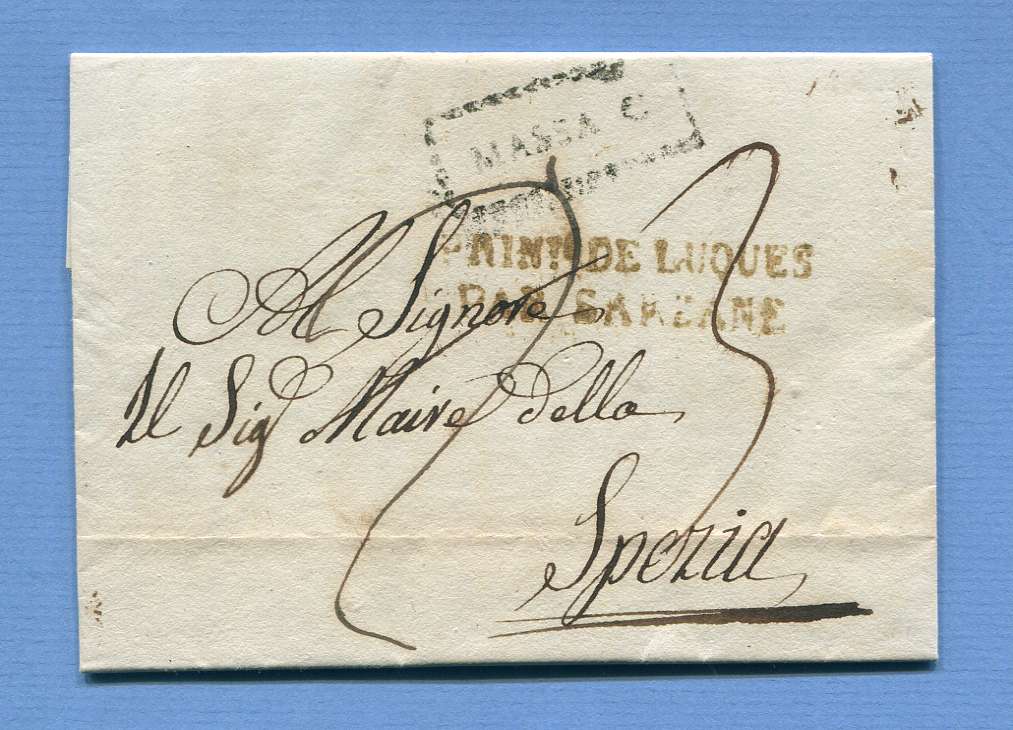 MASSA C
PRINTE DE LUQUES
PAR SARZANE
Al Signore
Il Sigr Maire della
Spezia